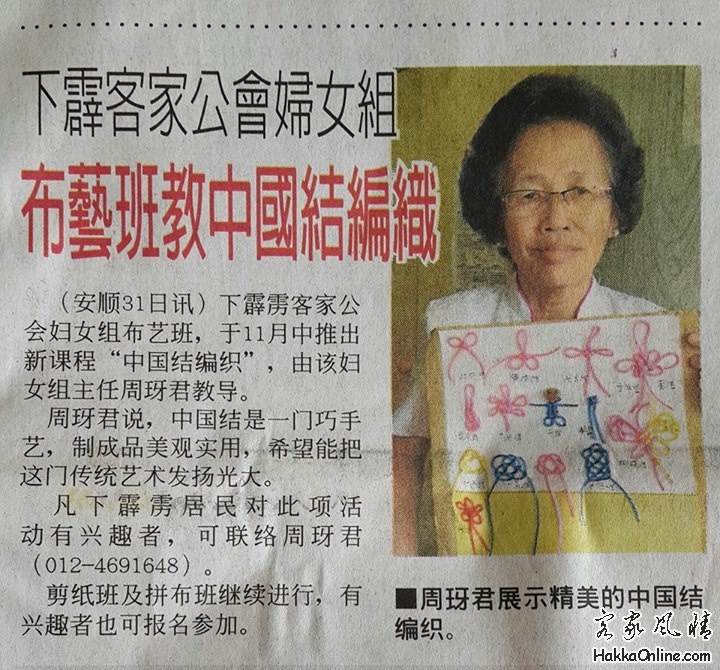 下霹客家公會婦女組
布藝班教中國結編織
（安顺31日讯）下霹雳客家公
会妇女组布艺班，于11月中推出
新课程“中国结编织”，由该妇
女组主任周玡君教导。
周玡君说，中国结是一门巧手
艺，制成品美观实用，希望能把
这门传统艺术发扬光大。
凡下霹雳居民对此项活
动有兴趣者，可联络周玡君
（012-4691648）。
剪纸班及拼布班继续进行，有
兴趣者也可报名参加。
■周玡君展示精美的中国结
编织。
客家风情
HakkaOnline.com